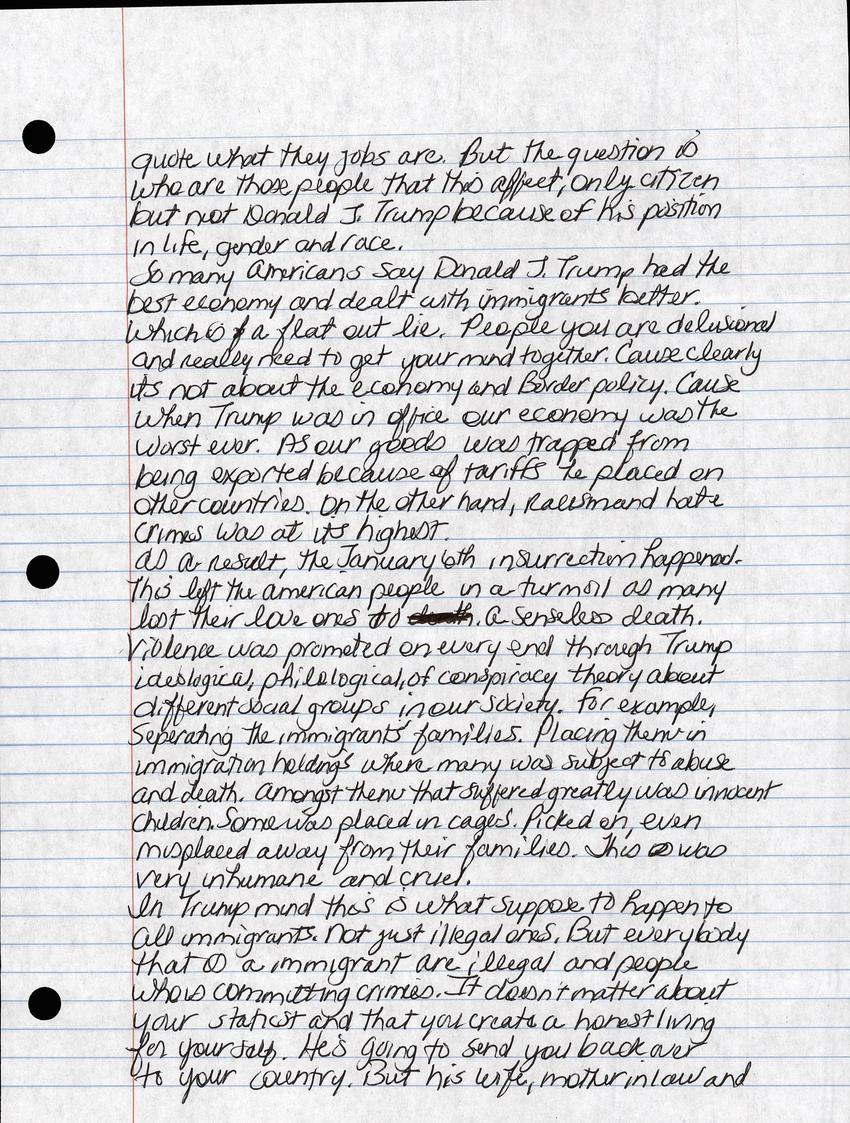 quote what they jobs are. But the question is
who are those people that this affect, only citizen
but not Donald J. Trump because of his position
in life, gender and race.
So many Americans say Donald J. Trump had the
best economy and dealt with immigrants better.
Which is a flat out lie. People you are delusional
and really need to get your mind together. Cause clearly
it's not about the economy and Border policy. Cause
when Trump was in office our economy was the
worst ever. As our goods was trapped from
being exported because of tariffs he placed on
other countries. On the other hand, Racism and hate
crimes was at its highest.
As a result, the January 6th insurrection happened.
This left the american people in a turmoil as many
lost their love ones to a senseless death.
Violence was promoted on every end through Trump
ideological, philological, of conspiracy theory about
different social groups in our society. For example,
Seperating the immigrants families. Placing them in
immigration holdings where many was subject to abuse
and death. Amongst them that suffered greatly was innocent
children. Some was placed in cages. Picked on, even
misplaced away from their families. This was
very inhumane and cruel.
In Trump mind this is what suppose to happen to
all immigrants. Not just illegal ones. But everybody
that is a immigrant are illegal and people
who is committing crimes. It doesn't matter about
your staticst and that you create a honest living
for yourself. He's going to send you back over
to your country. But his wife, mother in law and